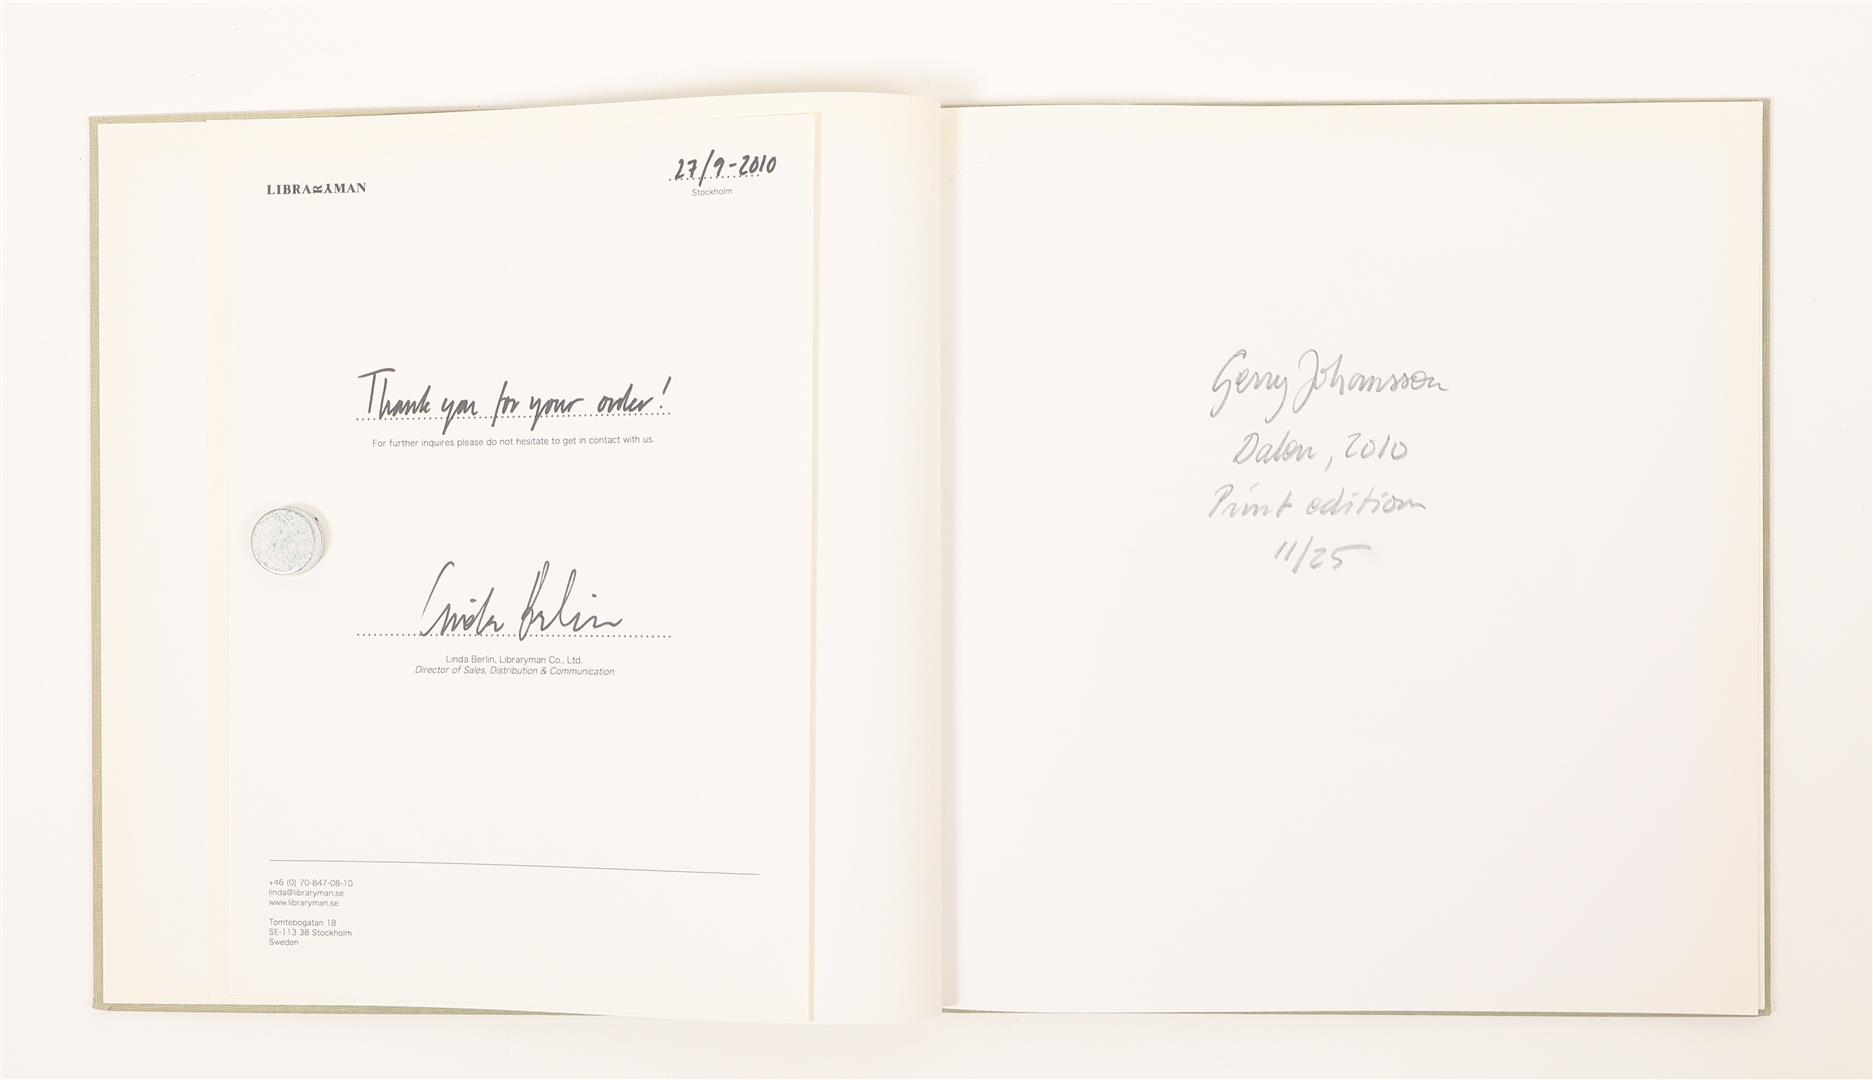 LIBRARYMAN
27/9-2010
Stockholm
Thank you for your order!
For further inquires please do not hesitate to get in contact with us.
Linda Berlin
Linda Berlin, Libraryman Co., Ltd.
Director of Sales, Distribution & Communication
+46 (0) 70-847-08-10
linda@libraryman.se
www.libraryman.se
Tomtebogatan 18
SE-113 38 Stockholm
Sweden
Gerry Johansson
Dalen, 2010
Print edition
11/25